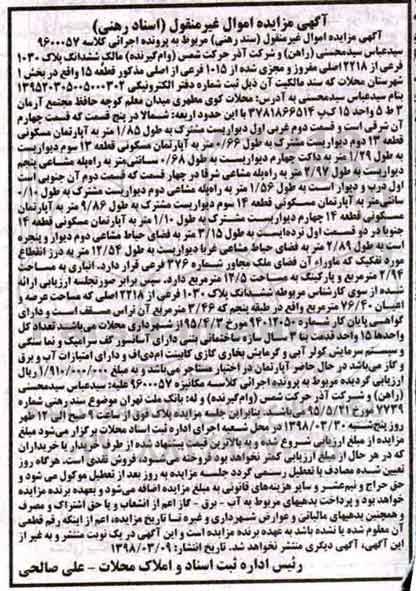 آگهی مزایده اموال غیرمنقول (اسناد رهنی)
آگهی مزایده اموال غیرمنقول (سند رهنی) مربوط به پرونده اجرائی کلاسه ۹۶۰۰۰۵۷
سیدعباس سیدمحسنی (راهن) و شرکت آذر حرکت شمس (وام‌گیرنده) مالک ششدانگ پلاک ۱۰۳۰
فرعی از ۲۲۱۸ اصلی مفروز و مجزی شده از ۱۰۱۵ فرعی از اصلی مذکور قطعه ۱۵ واقع در بخش ۱
شهرستان محلات که سند مالکیت آن ذیل ثبت شماره دفتر الکترونیکی ۱۳۹۵۲۰۳۰۵۰۰۵۰۰۰۳۰۲
بنام سیدعباس سیدمحسنی به آدرس: محلات کوی مطهری میدان معلم کوچه حافظ مجتمع آرمان
۳ ط ۵ واحد ۱۵ کدپ ۳۷۸۱۸۶۶۵۱۴ با این حدود اربعه: شمالا در پنج قسمت که قسمت چهارم
آن شرقی است و قسمت دوم غربی اول دیواریست مشترک به طول ۱/۸۵ متر به آپارتمان مسکونی
قطعه ۱۳ دوم دیواریست مشترک به طول ۰/۶۶ متر به آپارتمان مسکونی قطعه ۱۳ سوم دیواریست
به طول ۱/۲۹ متر به داکت چهارم دیواریست به طول ۰/۶۸ سانتی‌متر به راه‌پله مشاعی پنجم
دیواریست به طول ۲/۹۷ متر به راه‌پله مشاعی شرقا در چهار قسمت که قسمت دوم آن جنوبی است
اول درب و دیوار است به طول ۱/۵۶ متر به راه‌پله مشاعی دوم دیواریست مشترک به طول ۰/۱۰
سانتی‌متر به آپارتمان مسکونی قطعه ۱۴ سوم دیواریست مشترک به طول ۹/۸۶ متر به آپارتمان
مسکونی قطعه ۱۴ چهارم دیواریست مشترک به طول ۱/۱۰ متر به آپارتمان مسکونی قطعه ۱۴
جنوبا در دو قسمت اول نرده‌ایست به طول ۳/۱۵ متر به فضای حیاط مشاعی دوم دیوار و پنجره
است به طول ۲/۸۹ متر به فضای حیاط مشاعی غربا دیواریست به طول ۱۲/۵۴ متر به درز انقطاع
مورد تفکیک که ماوراء آن فضای ملک مجاور شماره ۳۷۶ فرعی قرار دارد. انباری به مساحت
۲/۹۴ مترمربع و پارکینگ به مساحت ۱۴/۵ مترمربع دارد. سپس برابر صورتجلسه ارزیابی ارائه
شده از سوی کارشناس مربوطه ششدانگ پلاک ۱۰۳۰ فرعی از ۲۲۱۸ اصلی که مساحت عرصه و
اعیان ۷۶/۴۰ مترمربع واقع در طبقه پنجم که ۳/۴۶ مترمربع آن تراس مسقف است و دارای
گواهی پایان کار شماره ۹۴۰۱۲۰۵۰ مورخ ۹۵/۴/۲ از شهرداری محلات می‌باشد تعداد کل
واحدها ۱۵ واحد قدمت بنا ۳ سال سازه ساختمانی بتنی دارای آسانسور کف سرامیک و نما سنگی
و سیستم سرمایش کولر آبی و گرمایش بخاری گازی کابینت ام‌دی‌اف و دارای امتیازات آب و برق
و گاز می‌باشد در حال حاضر آپارتمان در اختیار مستاجر می‌باشد و به مبلغ ۱/۹۱۰/۰۰۰/۰۰۰ ریال
ارزیابی گردیده مربوط به پرونده اجرائی کلاسه مکانیزه ۹۶۰۰۰۵۷ علیه: سیدعباس سیدمحسنی
(راهن) و شرکت آذر حرکت شمس (وام‌گیرنده) و له: بانک ملت تهران موضوع سند رهنی شماره
۷۷۳۹ مورخ ۹۵/۵/۲۱ می‌باشد. بنابراین جلسه مزایده پلاک فوق از ساعت ۹ صبح الی ۱۲ ظهر
روز پنج‌شنبه ۱۳۹۸/۰۳/۳۰ در محل شعبه اجرای اداره ثبت اسناد محلات برگزار می‌شود مبلغ
مزایده از مبلغ ارزیابی شروع شده و به بالاترین قیمت پیشنهاد شده از طرف خریدار یا خریداران
که در هر حال از مبلغ ارزیابی کمتر نخواهد بود فروخته می‌شود، فروش نقدی است. هرگاه روز
تعیین شده مصادف با تعطیل رسمی گردد جلسه مزایده به روز بعد از تعطیل موکول می شود و
حق حراج و نیم‌عشر و سایر هزینه‌های قانونی به مبلغ مزایده اضافه می‌شود و بعهده برنده مزایده
خواهد بود و پرداخت بدهیهای مربوط به آب - برق - گاز اعم از انشعاب و یا حق اشتراک و مصرف
و همچنین بدهیهای مالیاتی و عوارض شهرداری و غیره تا تاریخ مزایده، اعم از اینکه رقم قطعی
آن معلوم شده یا نشده باشد به عهده برنده مزایده است و این آگهی در یک نوبت منتشر و به غیر از
این آگهی، آگهی دیگری منتشر نخواهد شد. تاریخ انتشار: ۱۳۹۸/۰۳/۰۹
رئیس اداره ثبت اسناد و املاک محلات - علی صالحی